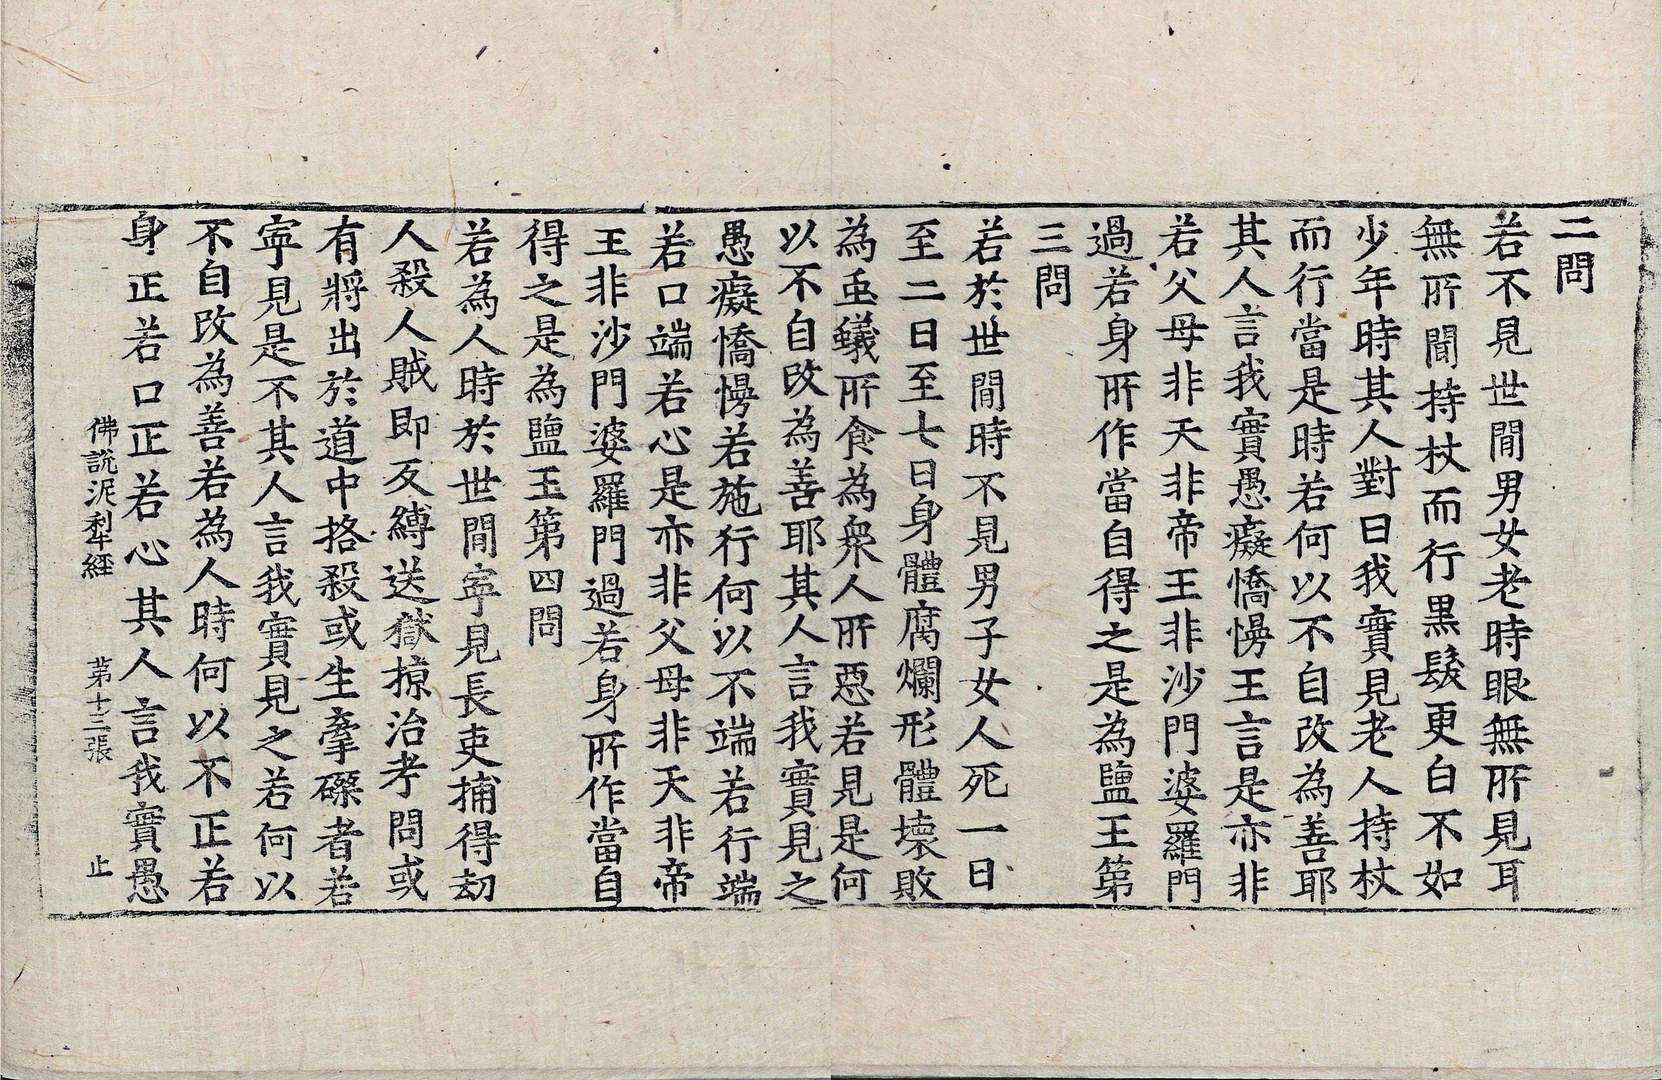 二問
若不見世閒男女老時眼無所見耳
無所聞持杖而行黒髮更白不如
少年時其人對曰我實見老人持杖
而行當是時若何以不自改為善耶
其人言我實愚癡憍慢王言是亦非
若父母非天非帝王非沙門婆羅門
過若身所作當自得之是為盬王第
三問
若於世閒時不見男子女人死一日
至二日至七日身體腐爛形體壊敗
為䖝蟻所食為衆人所惡若見是何
以不自改為善耶其人言我實見之
愚癡憍慢若施行何以不端若行端
若口端若心是亦非父母非天非帝
王非沙門婆羅門過若身所作當自
得之是為盬王第四問
若為人時於世閒寧見長吏捕得刧
人殺人賊即反縛送獄掠治考問或
有將出於道中挌殺或生牽磔者若
寧見是不其人言我實見之若何以
不自改為善若為人時何以不正若
身正若口正若心其人言我實愚
佛說泥犁經 第十三張 止